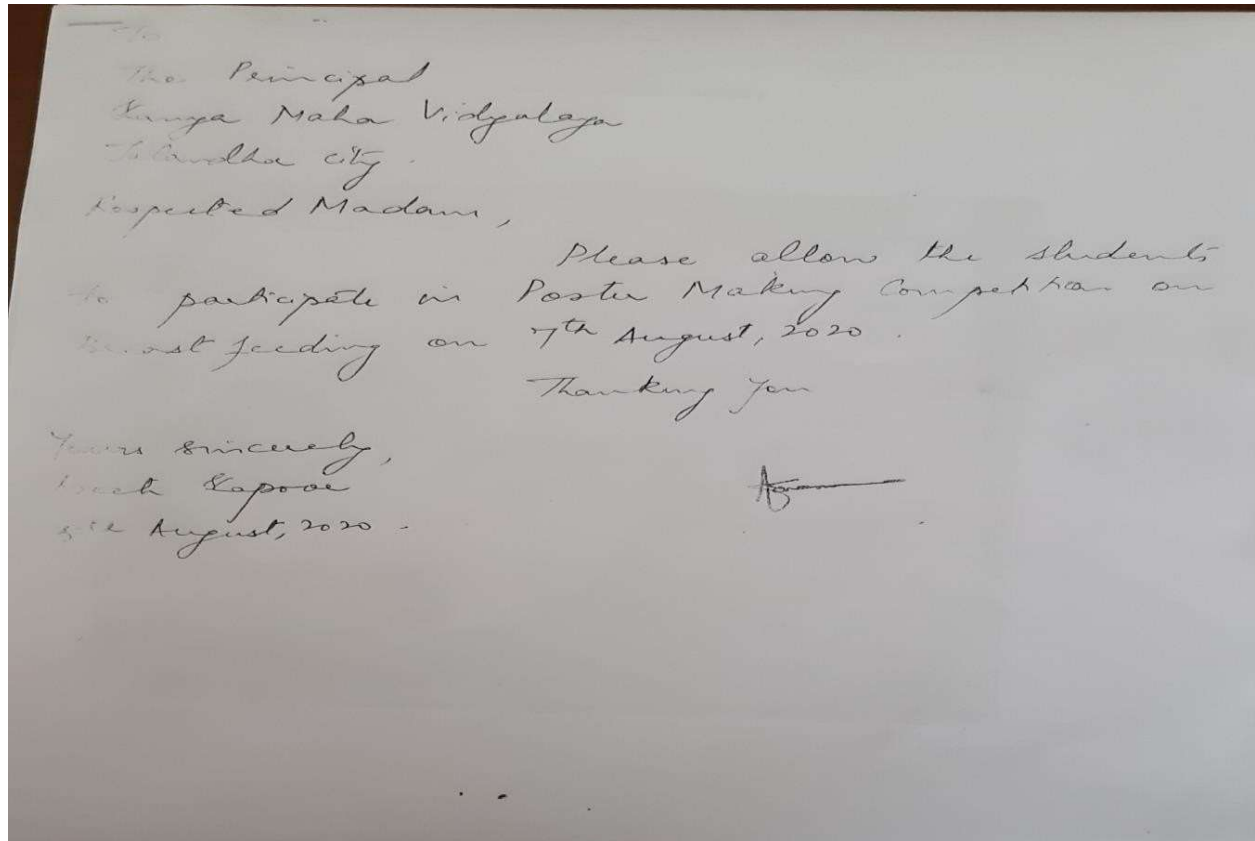 To
The Principal
Kanya Maha Vidyalaya
city.
Respected Madam,
Please allow the students
to participate in Poster Making Competition on
Breast feeding on 7th August, 2020.
Thanking You
Yours sincerely,
Kapoor
August, 2020.